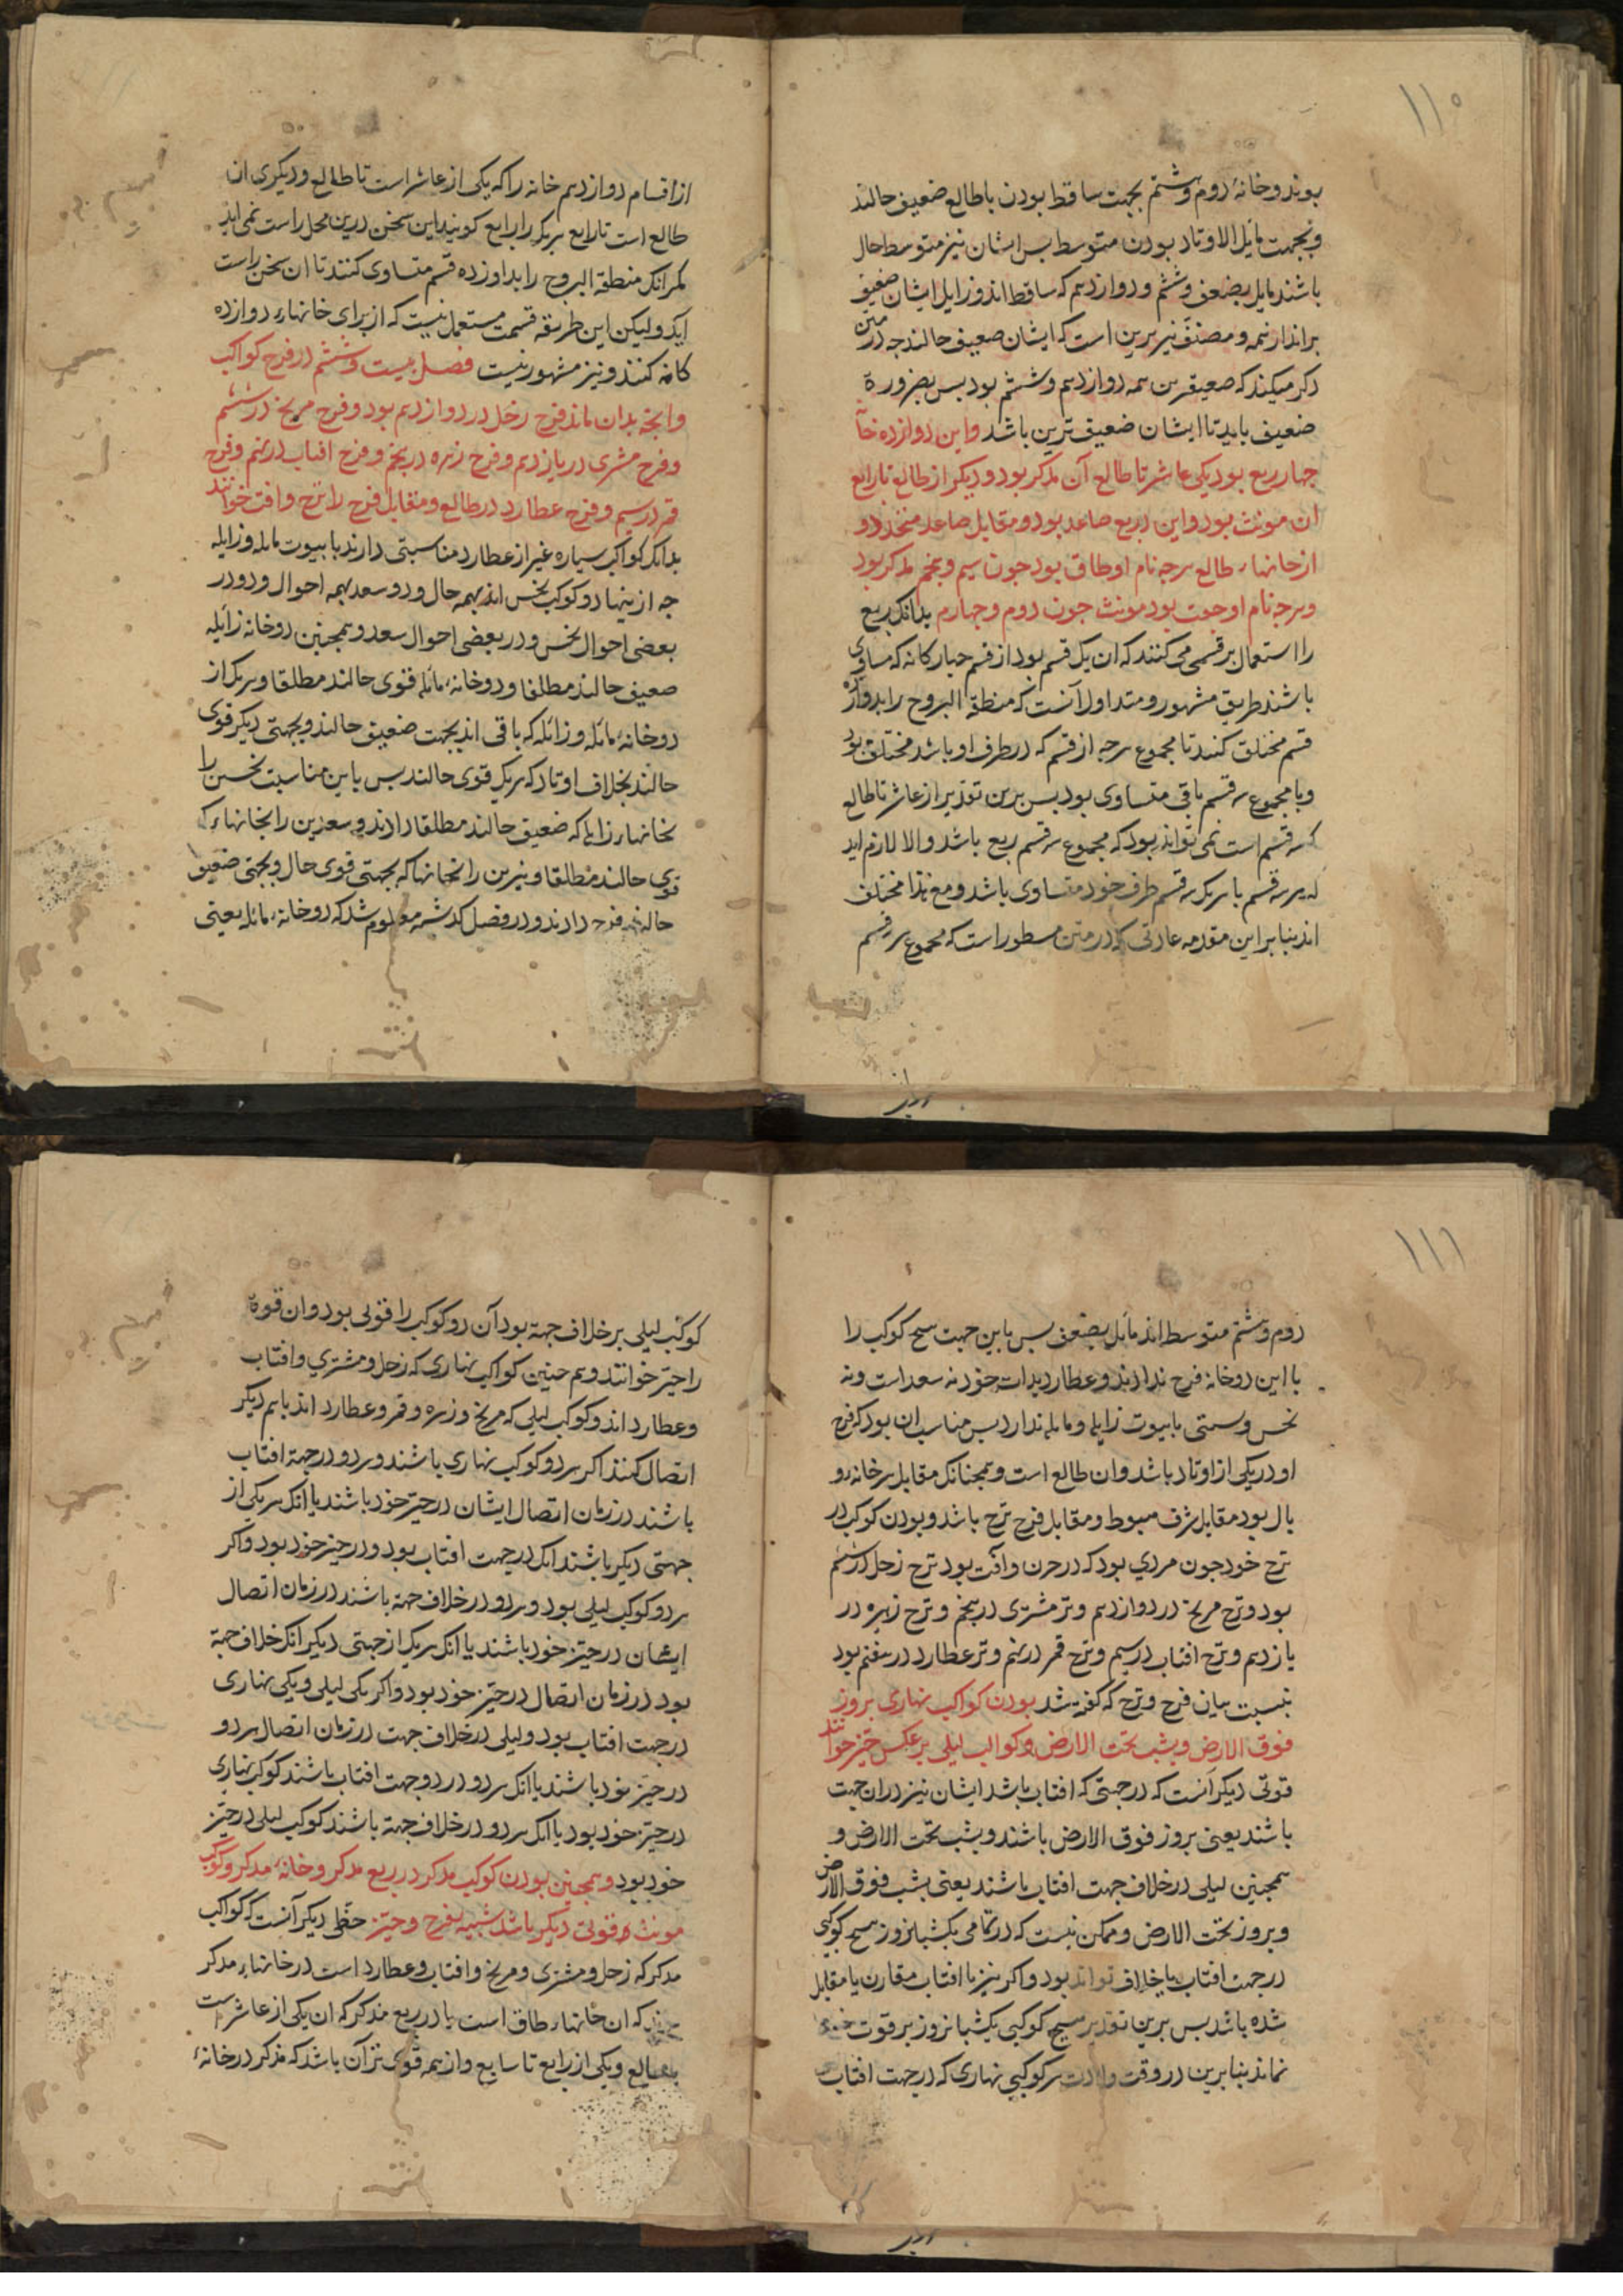 ۱۱۰
بوند و خانهٔ دوم و هشتم بجهت ساقط بودن با طالع ضعیف حالند
و بجهت مایل الاوتاد بودن متوسط بس ایشان نیز متوسط حال
باشند مایل بضعف و ششم و دوازدهم که ساقط اند و زایل ایشان ضعیف
براند از همه و مصنف نیز برین است که ایشان ضعیف حالند جه در متن
ذکر میکند که ضعیفترین همه دوازدهم و ششم بود بس بضرورة
ضعیف باید تا ایشان ضعیف ترین باشد و این دوازده خانه
جهار ربع بود یکی عاشر تا طالع آن مذکر بود و دیکر از طالع تا رابع
ان مونث بود و این دو ربع صاعد بود و مقابل صاعد منحدر و
از خانها، طالع هرجه نام او طاق بود جون سیم و بنجم مذکر بود
و هرجه نام او جفت بود مونث جون دوم و جهارم بدانک ربع
را استعمال بر قسمی می کنند که ان یک قسم بود از قسم جهارکانه که مساوی
باشند طریق مشهور و متداول آنست که منطقة البروج را بدوازده
قسم مختلف کنند تا مجموع هرجه از قسم که در طرف او باشد مختلف بود
و با مجموع سه قسم باقی متساوی بود بس برین تقدیر از عاشر تا طالع
که سه قسم است نمی تواند بود که مجموع سه قسم ربع باشد و الا لازم اید
که هر سه قسم با هریک سه قسم طرف خود متساوی باشد و مع هذا مختلف
اند بنا بر این مقدمه عبارتی که در متن مسطور است که مجموع هر سه قسم
از اقسام دوازدهم خانه را که یکی از عاشر است تا طالع و دیکری ان
طالع است تا رابع هریک را رابع کویند این سخن درین محل راست نمی اید
مکر انک منطقة البروج را بدوازده قسم متساوی کنند تا ان سخن راست
آید و لیکن این طریقه قسمت مستعمل نیست که از برای خانهاء دوازده
کانه کنند و نیز مشهور نیست فصل بیست و ششم در فرح کواکب
و آنجه بدان ماند فرح زحل در دوازدهم بود و فرح مریخ در ششم
و فرح مشتری در یازدهم و فرح زهره در بنجم و فرح افتاب در نهم و فرح
قمر در سیم و فرح عطارد در طالع و مقابل فرح را ترح و افت خوانند
بدانک کواکب سیاره غیر از عطارد مناسبتی دارند با بیوت مایله و زایله
جه از ینها دو کوکب نحس اند بهمه حال و دو سعد بهمه احوال و دو در
بعضی احوال نحس و در بعضی احوال سعد و همجنین دو خانه زایله
ضعیف حالند مطلقا و دو خانهٔ مایله قوی حالند مطلقا و هریک از
دو خانهٔ مایله و زایله که باقی اند بجهت ضعیف حالند و بجهتی دیکر قوی
حالند بخلاف اوتاد که هریک قوی حالند بس باین مناسبت نحسین را
بخانهاء زایله که ضعیف حالند مطلقا دادند و سعدین را بخانهاء که
قوی حالند مطلقا و نیرین را بخانها که بجهتی قوی حال و بجهتی ضعیف
حالند فرح دادند و در فصل کذشته معلوم شد که دو خانهٔ مایله یعنی
۱۱۱
دوم و هشتم متوسط اند مایل بضعف بس باین جهت هیج کوکب را
با این دو خانه فرح ندادند و عطارد بذات خود نه سعد است و نه
نحس و سمتی با بیوت زایله و مایله ندارد بس مناسب ان بود که فرح
او در یکی از اوتاد باشد و ان طالع است و همجنانک مقابل هر خانه و
بال بود مقابل شرف هبوط و مقابل فرح ترح باشد و بودن کوکب در
ترح خود جون مردی بود که در حزن و آفت بود ترح زحل در ششم
بود و ترح مریخ در دوازدهم و ترح مشتری در بنجم و ترح زهره در
یازدهم و ترح افتاب در سیم و ترح قمر در نهم و ترح عطارد در هفتم بود
بنسبت بیان فرح و ترح که کفته شد بودن کواکب نهاری بروز
فوق الارض و بشب تحت الارض و کواکب لیلی برعکس حیز خوانند
قوتی دیکر آنست که در جهتی که افتاب باشد ایشان نیز در ان جهت
باشند یعنی بروز فوق الارض باشند و بشب تحت الارض و
همجنین لیلی در خلاف جهت افتاب باشند یعنی بشب فوق الارض
و بروز تحت الارض و ممکن نیست که در تمامی یکشبانروز هیج کوکبی
در جهت افتاب یا خلاف تواند بود و اکر نیز با افتاب مقارن یا مقابل
شده باشد بس برین تقدیر هیج کوکبی یکشبانروز بر قوت خود
نماند بنا برین در وقت ولادت هر کوکبی نهاری که در جهت افتاب
کوکب لیلی بر خلاف جهة بود آن دو کوکب را قوتی بود و ان قوة
را حیز خوانند و هم جنین کواکب نهاری که زحل و مشتری و افتاب
و عطارد اند و کوکب لیلی که مریخ و زهره و قمر و عطارد اند با هم دیکر
اتصال کنند اکر هر دو کوکب نهاری باشند و هر دو در جهة افتاب
باشند در زمان اتصال ایشان در حیز خود باشند یا انک هر یکی از
جهتی دیکر باشند انک در جهت افتاب بود و در حیز خود بود و اکر
هر دو کوکب لیلی بود و هر دو در خلاف جهة باشند در زمان اتصال
ایشان در حیز خود باشند یا انک هریک از جهتی دیکر انک خلاف جهة
بود در زمان اتصال در حیز خود بود و اکر یکی لیلی و یکی نهاری
در جهت افتاب بود و لیلی در خلاف جهت در زمان اتصال هر دو
در حیز خود باشند یا انک هر دو در دو جهت افتاب باشند کوکب نهاری
در حیز خود بود یا انک هر دو در خلاف جهة باشند کوکب لیلی در حیز
خود بود و همجنین بودن کوکب مذکر در ربع مذکر و خانهٔ مذکر و کوکب
مونث قوتی دیکر باشد شبیه بفرح و حیز حظی دیکر آنست که کواکب
مذکر که زحل و مشتری و مریخ و افتاب و عطارد است در خانهاء مذکر
که ان خانهاء طاق است یا در ربع مذکر که ان یکی از عاشر است
تا طالع و یکی از رابع تا سابع و از همه قوی تر آن باشد که مذکر در خانهٔ